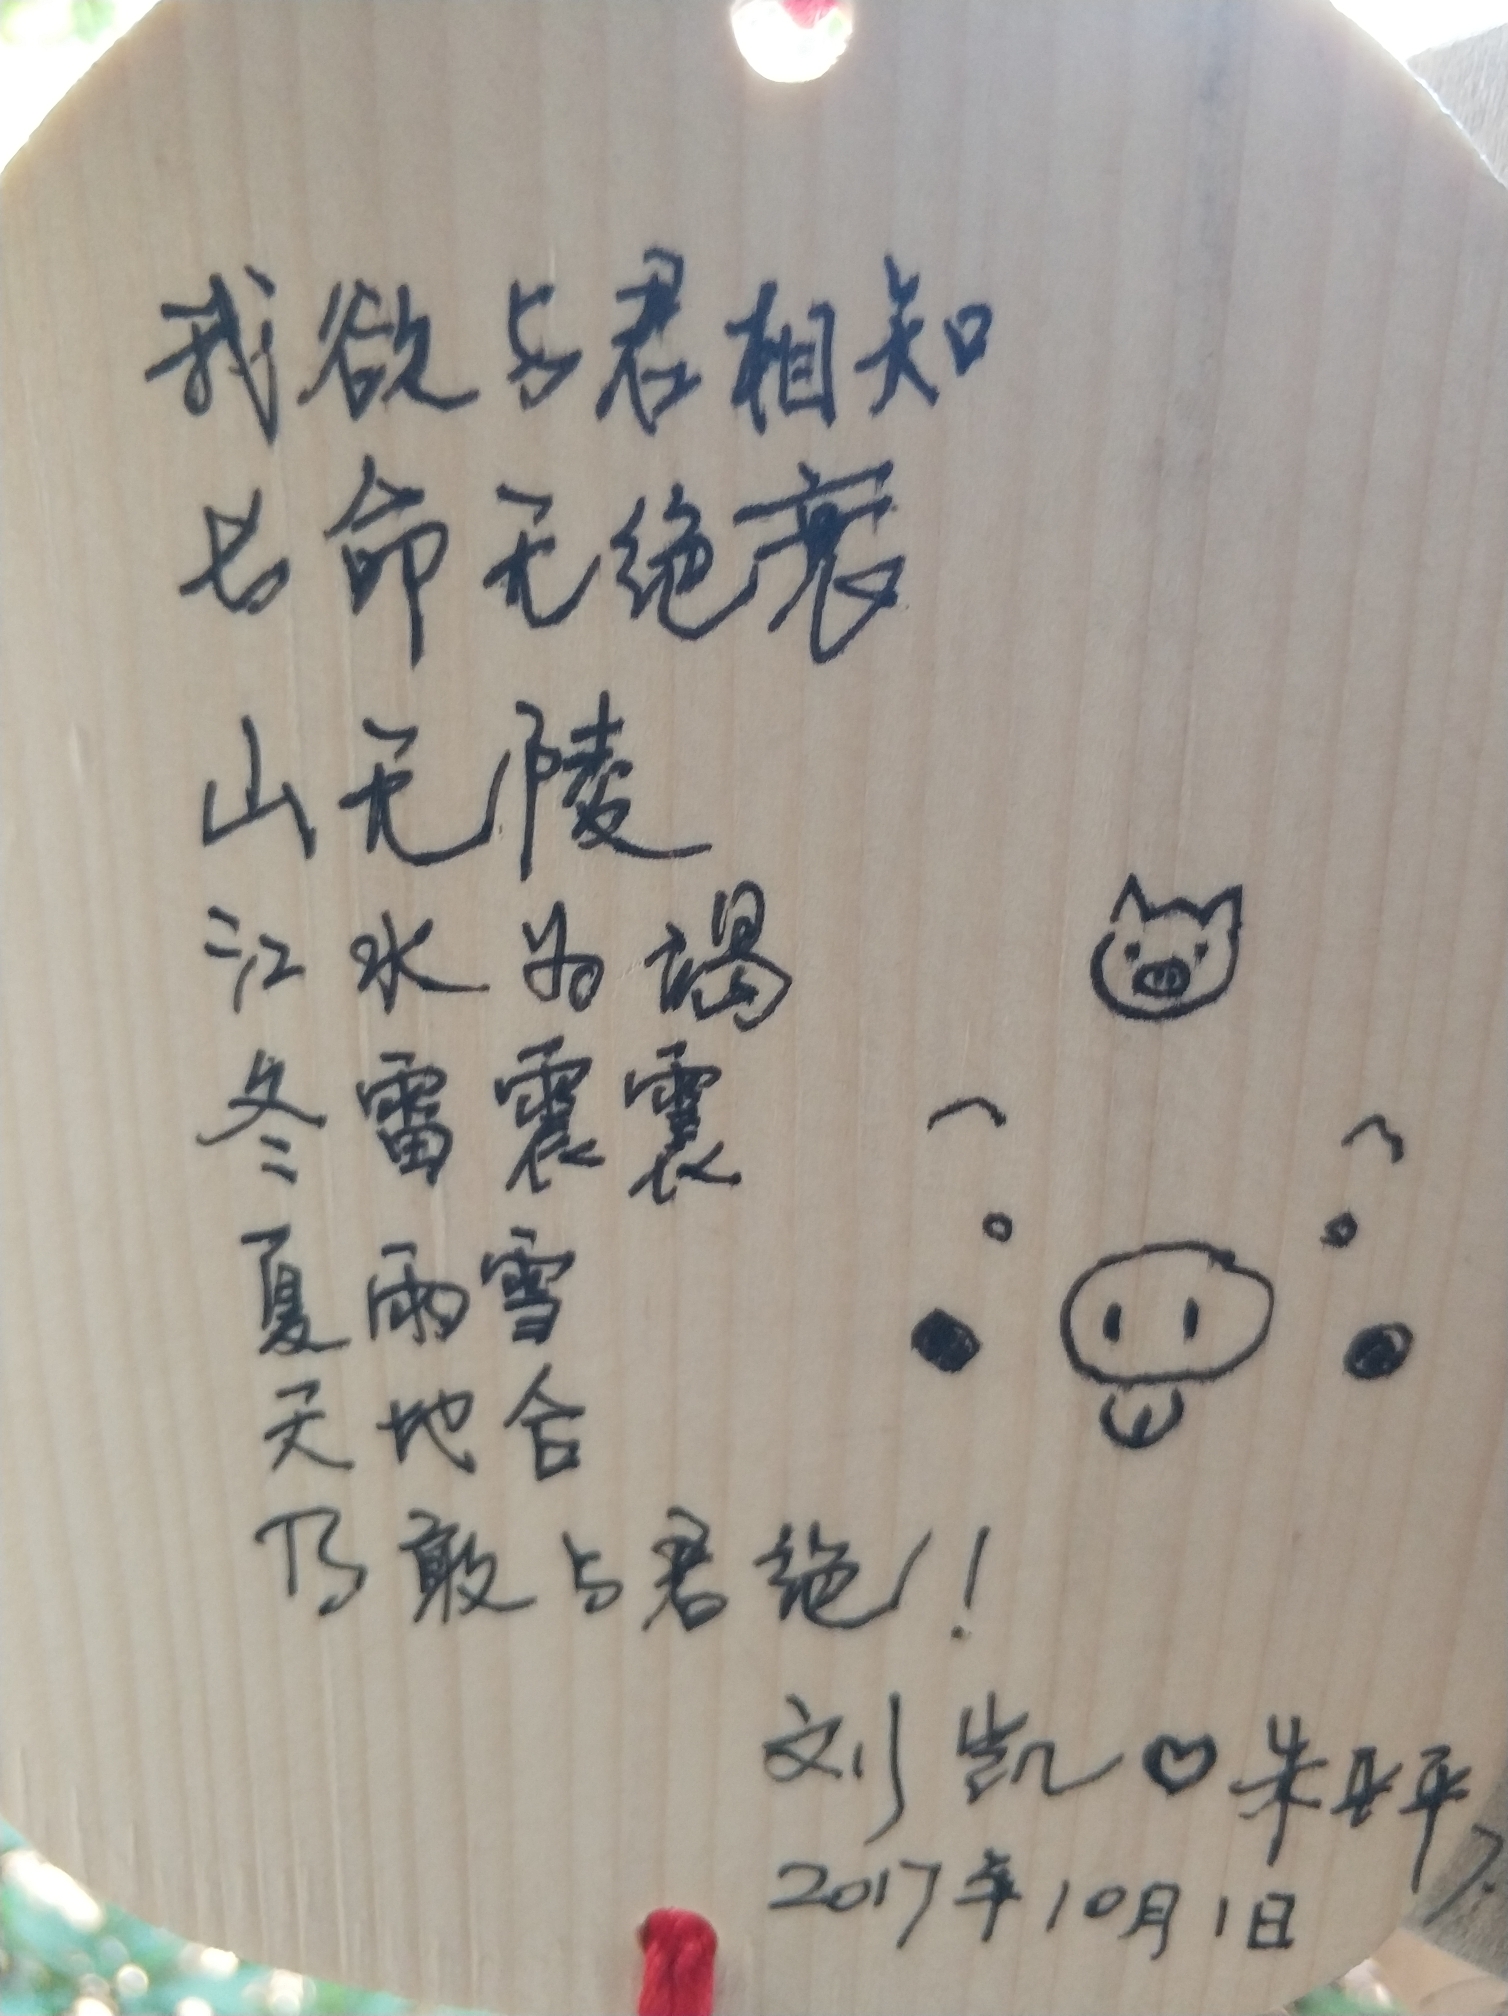 我欲与君相知
长命无绝衰
山无陵
江水为竭
冬雷震震
夏雨雪
天地合
乃敢与君绝！
刘凯♡朱
2017年10月1日